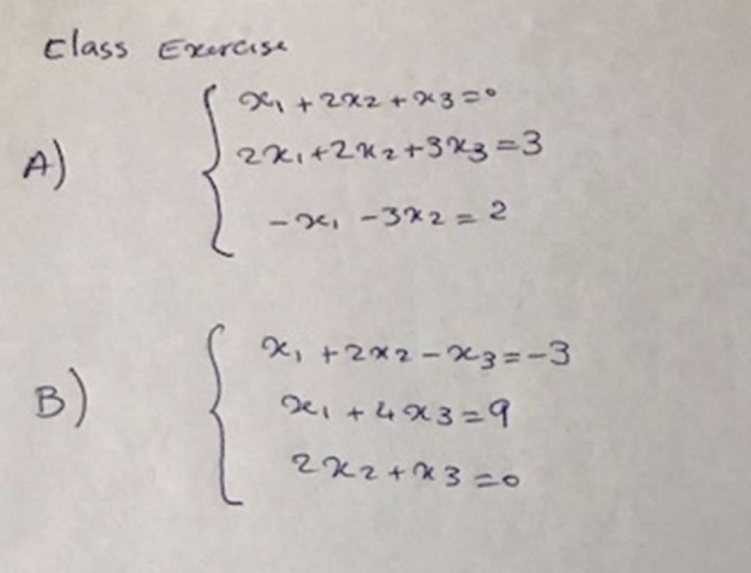 Class Exercise
A)
x₁ + 2x₂ + x₃ = 0
2x₁ + 2x₂ + 3x₃ = 3
-x₁ - 3x₂ = 2
B)
x₁ + 2x₂ - x₃ = -3
x₁ + 4x₃ = 9
2x₂ + x₃ = 0